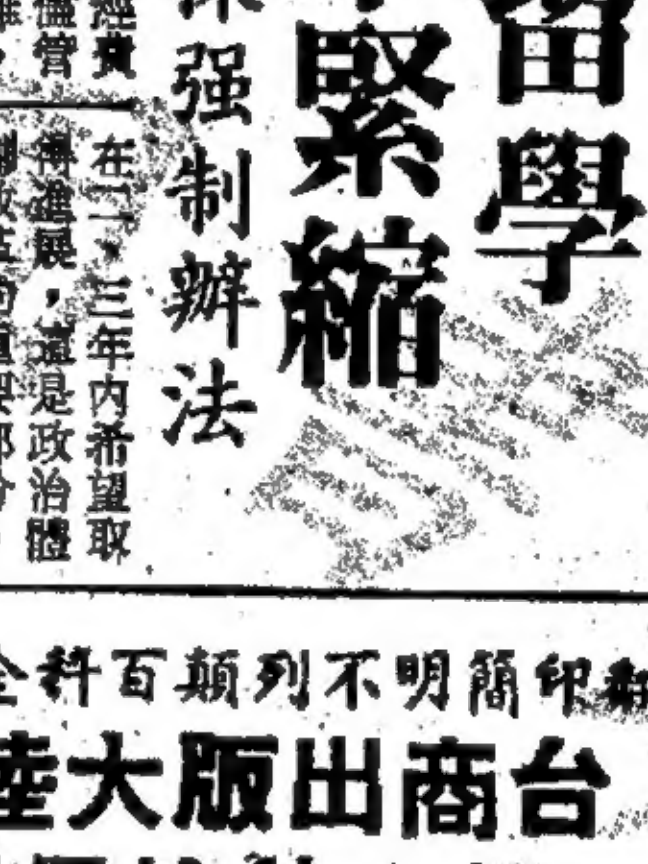 留學
緊縮
强制辦法
經費
在二、三年內希望取
儘管
得進展，這是政治體
翻印簡明不列顛百科全
台商出版大陸